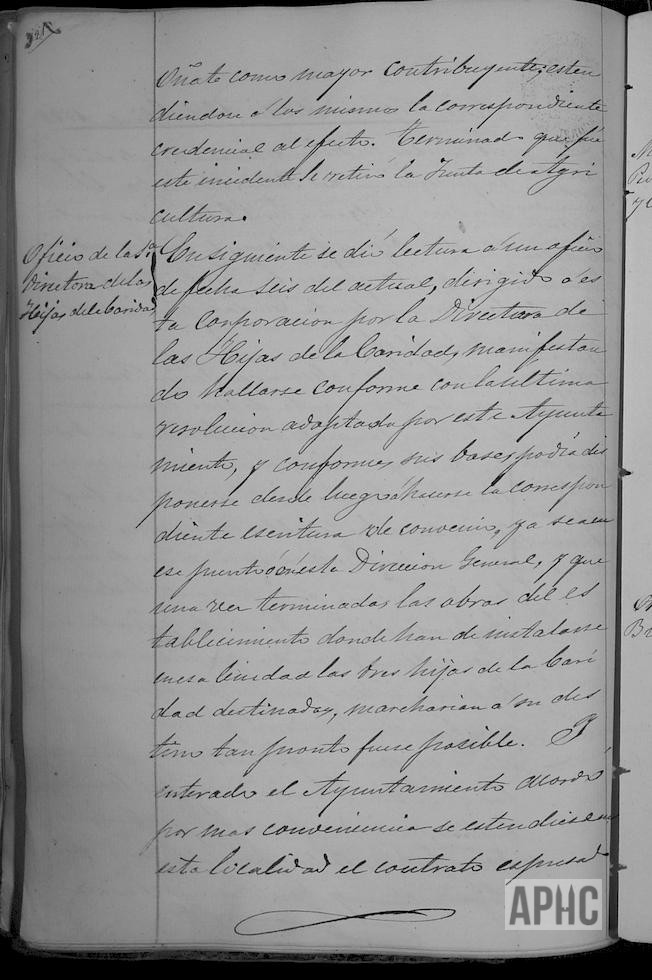 Oñate como mayor contribuyente; esten
diendose á los mismos la correspondiente
credencial al efecto. Terminado que fué
este incidente se retiró la Junta de Agri
cultura.
Oficio de la Sra
Directora de las
Hijas de la Caridad
Ensiguiente se dió lectura á un oficio
de fecha seis del actual, dirigido á es
ta Corporacion por la Directora de
las Hijas de la Caridad, manifestan
do hallarse conforme con la última
resolucion adoptada por este Ayunta
miento, y conformes sus bases, podía dis
ponerse desde luego á hacerse la correspon
diente escritura de convenio, ya sea en
ese punto ó en esta Direccion General, y que
una vez terminadas las obras del es
tablecimiento donde han de instalarse
en esa Ciudad las tres hijas de la Cari
dad destinadas, marcharian á su des
tino tan pronto fuese posible. Y
enterado el Ayuntamiento acordó
por mas conveniencia se estendiese en
esta localidad el contrato espresado
APHC